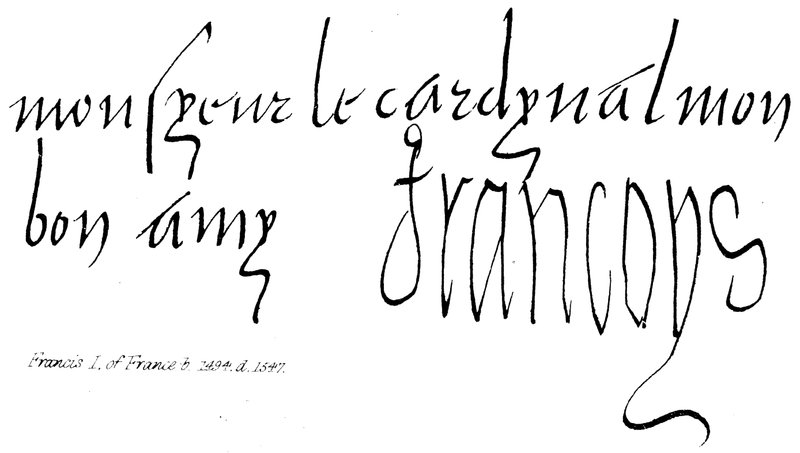 monsyeur le cardynal mon
bon amy
françoys
Francis I. of France b. 1494. d. 1547.